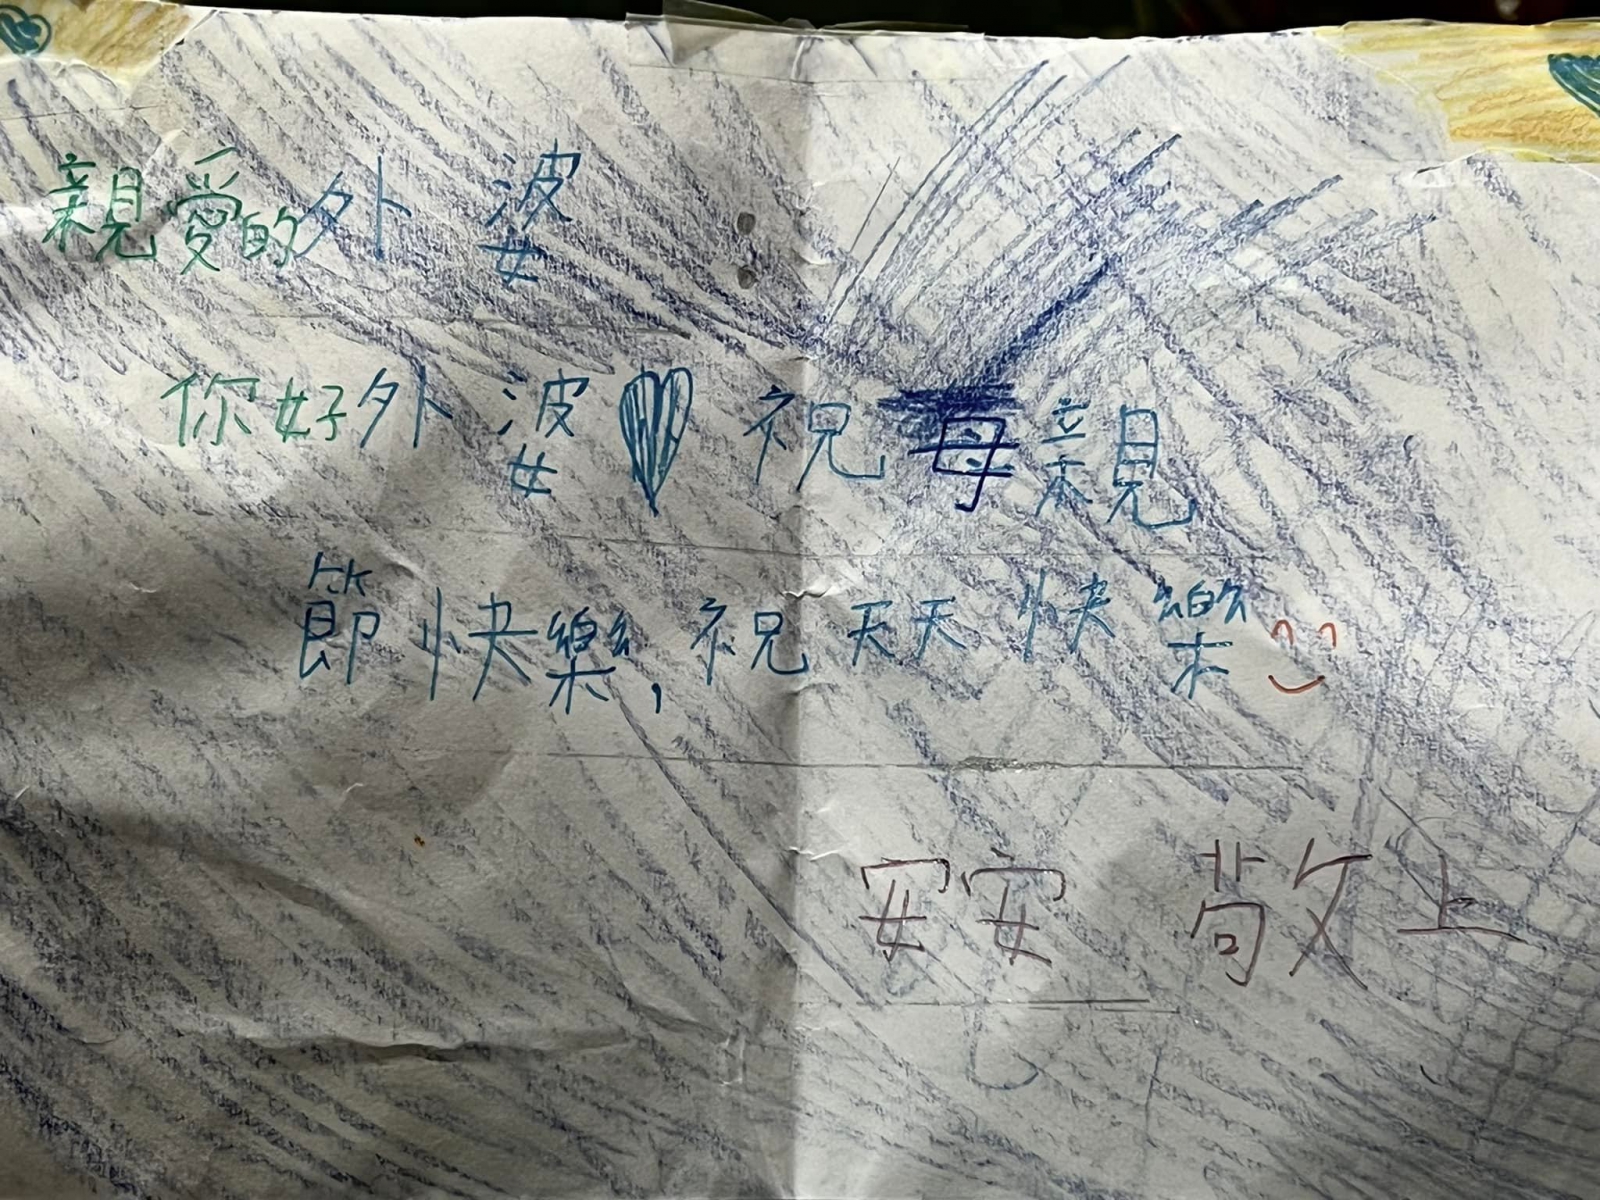 親愛的外婆:
你好外婆祝母親
節快樂,祝天天快樂
安安 敬上